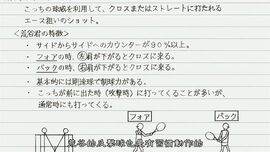 こっちの球威を利用して、クロスまたはストレートに打たれる
エース狙いのショット。
<荒谷君の特徴>
・サイドからサイドへのカウンターが90%以上。
・フォアの時、左肩が下がるとクロスに来る。
・バックの時、右肩が下がるとクロスに来る。
・基本的には剛速球で制球力がある。
・前に出た時（攻撃時）に打ってくることが多いが、
通常時にも打ってくる。
フォア
バック
荒谷的反擊球也是有習慣動作的